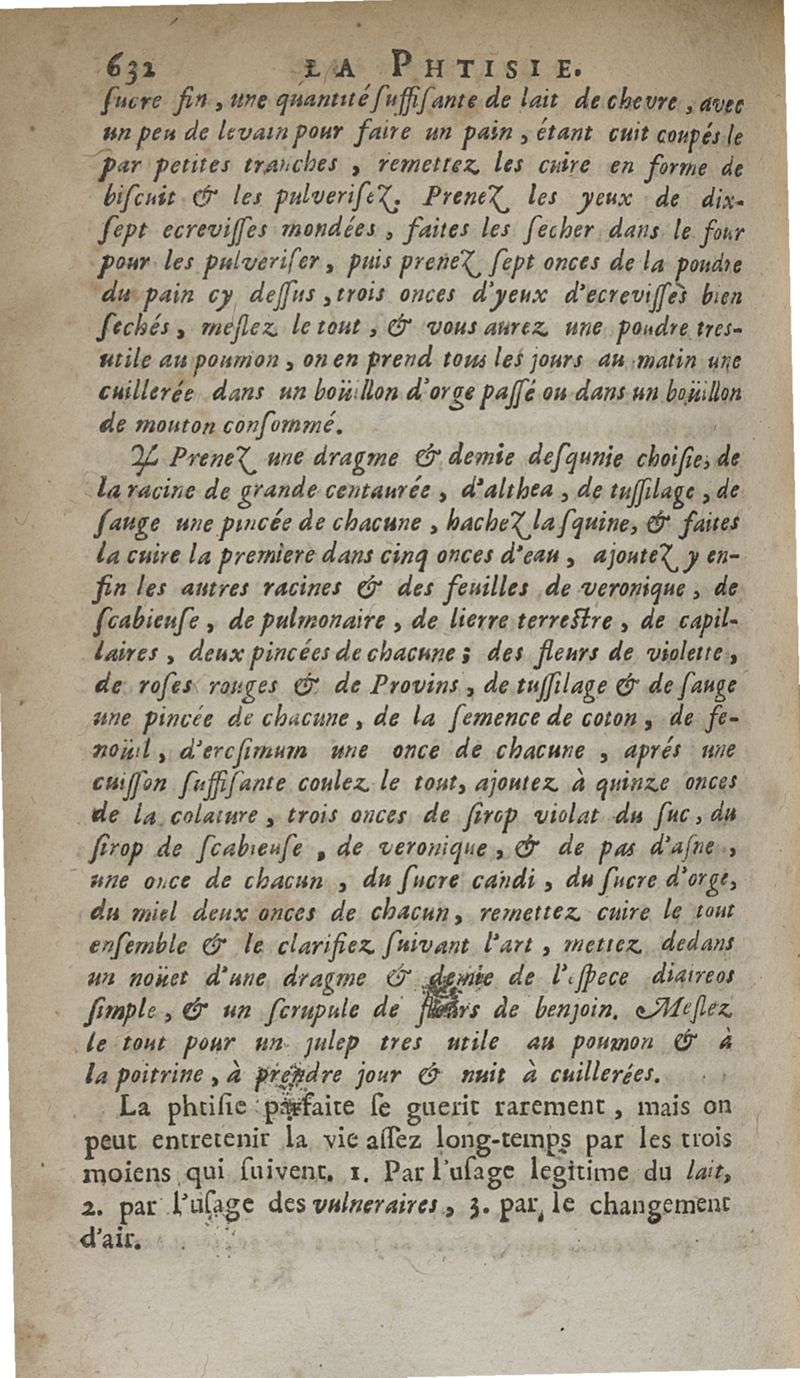 632 LA PHTISIE.
ſucre fin, une quantité ſuffiſante de lait de chevre, avec
un peu de levain pour faire un pain, étant cuit coupés le
par petites tranches, remettez les cuire en forme de
biſcuit & les pulveriſez. Prenez les yeux de dix-
ſept ecreviſſes mondées, faites les ſecher dans le four
pour les pulveriſer, puis prenez ſept onces de la poudre
du pain cy deſſus, trois onces d'yeux d'ecreviſſes bien
ſechés, meſlez le tout, & vous aurez une poudre tres-
utile au poumon, on en prend tous les jours au matin une
cuillerée dans un boüillon d'orge paſſé ou dans un boüillon
de mouton conſommé.
♃ Prenez une dragme & demie deſqunie choiſie, de
la racine de grande centaurée, d'althea, de tuſſilage, de
ſauge une pincée de chacune, hachez la ſquine, & faites
la cuire la premiere dans cinq onces d'eau, ajoutez y en-
fin les autres racines & des feuilles de veronique, de
ſcabieuſe, de pulmonaire, de lierre terreſtre, de capil-
laires, deux pincées de chacune; des fleurs de violette,
de roſes rouges & de Provins, de tuſſilage & de ſauge
une pincée de chacune, de la ſemence de coton, de fe-
noüil, d'ercſimum une once de chacune, aprés une
cuiſſon ſuffiſante coulez le tout, ajoutez à quinze onces
de la colature, trois onces de ſirop violat du ſuc, du
ſirop de ſcabieuſe, de veronique, & de pas d'aſne,
une once de chacun, du ſucre candi, du ſucre d'orge,
du miel deux onces de chacun, remettez cuire le tout
enſemble & le clarifiez ſuivant l'art, mettez dedans
un noüet d'une dragme & demie de l'eſpece diaireos
ſimple, & un ſcrupule de fleurs de benjoin. Meſlez
le tout pour un julep tres utile au poumon & à
la poitrine, à prendre jour & nuit à cuillerées.
La phtiſie parfaite ſe guerit rarement, mais on
peut entretenir la vie aſſez long-temps par les trois
moiens qui ſuivent. 1. Par l'uſage legitime du lait,
2. par l'uſage des vulneraires, 3. par le changement
d'air.